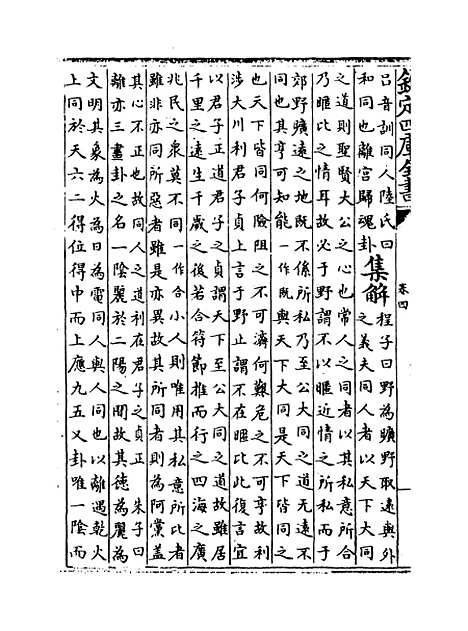 欽定四庫全書
卷四
吕音訓同人陸氏曰
和同也離宫歸魂卦
集解
程子曰野為曠野取遠與外
之義夫同人者以天下大同
之道則聖賢大公之心也常人之同者以其私意所合
乃暱比之情耳故必于野謂不以暱近情之所私而于
郊野曠遠之地既不係所私乃至公大同之道无遠不
同也其亨可知能一作既與天下大同是天下皆同之
也天下皆同何險阻之不可濟何艱危之不可亨故利
涉大川利君子貞上言于野止謂不在暱比此復言宜
以君子正道君子之貞謂天下至公大同之道故雖居
千里之遠生千歲之後若合符節推而行之四海之廣
兆民之衆莫不同一作合小人則唯用其私意所比者
雖非亦同所惡者雖是亦異故其所同者則為阿黨蓋
其心不正也故同人之道利在君子之貞正 朱子曰
離亦三畫卦之名一陰麗於二陽之間故其德為麗為
文明其象為火為日為電同人與人同也以離遇乾火
上同於天六二得位得中而上應九五又卦唯一陰而